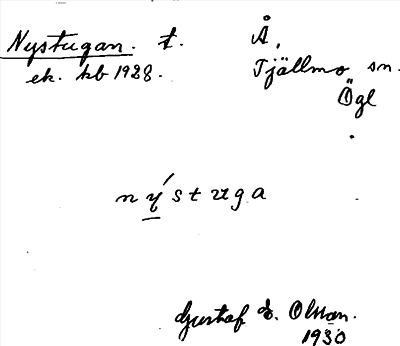 Nystugan. t. Å,
ek. kb 1928. Tjällmo sn.
Ögl
ný̱stuga
Gustaf E. Olsson.
1930